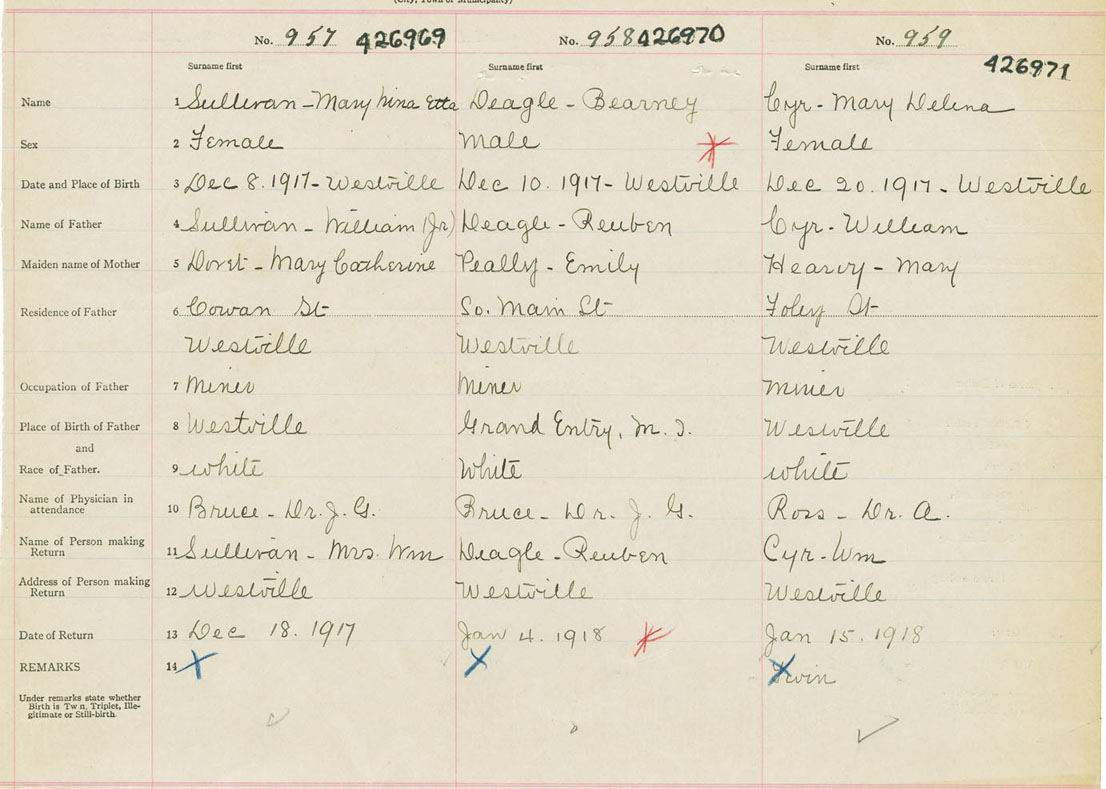 (City, Town or Municipality)
No. 957 426969 No. 958 426970 No. 959
426971
Surname first Surname first Surname first
Name 1 Sullivan - Mary Nina Etta Deagle - Bearney Cyr - Mary Delena
Sex 2 Female Male Female
Date and Place of Birth 3 Dec 8. 1917 - Westville Dec 10. 1917 - Westville Dec 20. 1917 - Westville
Name of Father 4 Sullivan - William (Jr) Deagle - Reuben Cyr - William
Maiden name of Mother 5 Doret - Mary Catherine Peally - Emily Hearvy - Mary
Residence of Father 6 Cowan St So. Main St Foley St
Westville Westville Westville
Occupation of Father 7 Miner Miner Miner
Place of Birth of Father 8 Westville Grand Entry, M. I. Westville
and
Race of Father. 9 white White white
Name of Physician in
attendance 10 Bruce - Dr. J. G. Bruce - Dr. J. G. Ross - Dr. A.
Name of Person making
Return 11 Sullivan - Mrs. Wm Deagle - Reuben Cyr - Wm
Address of Person making
Return 12 Westville Westville Westville
Date of Return 13 Dec 18. 1917 Jan 4. 1918 Jan 15. 1918
REMARKS 14 X X Twin
Under remarks state whether
Birth is Twin, Triplet, Ille-
gitimate or Still-birth.